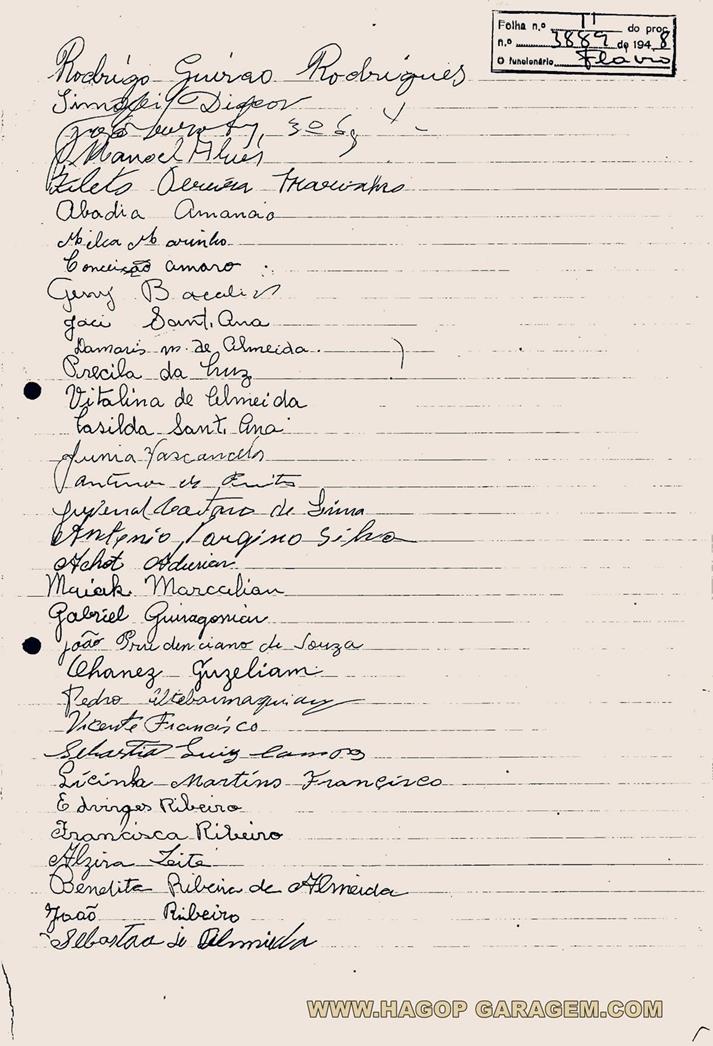 Folha n.º 11 do proc.
n.º 3889 de 1948
O funcionário Flavio
Rodrigo Guirao Rodrigues
Manoel Alves
Abadia Amancio
Milca Marinho
Conceisão amaro
Geny
Jaci Sant. Ana
Damaris m. de Almeida.
Precila da Luz
Vitalina de Almeida
Casilda Sant. Ana
Junia Vascancelos
Juvenal Caetano de Lima
Antonio Virgino Silva
Achot
Maiak Marcalian
Gabriel Guiragonian
João Prudenciano de Souza
Ohanez Guzeliam
Pedro
Vicente Francisco
Sebastiã Luiz Campos
Licinha Martins Francisco
Edvirges Ribeiro
Francisca Ribeiro
Alzira Leite
Benedita Ribeira de Almeida
João Ribeiro
Sebastao de Almeida
WWW.HAGOP GARAGEM.COM